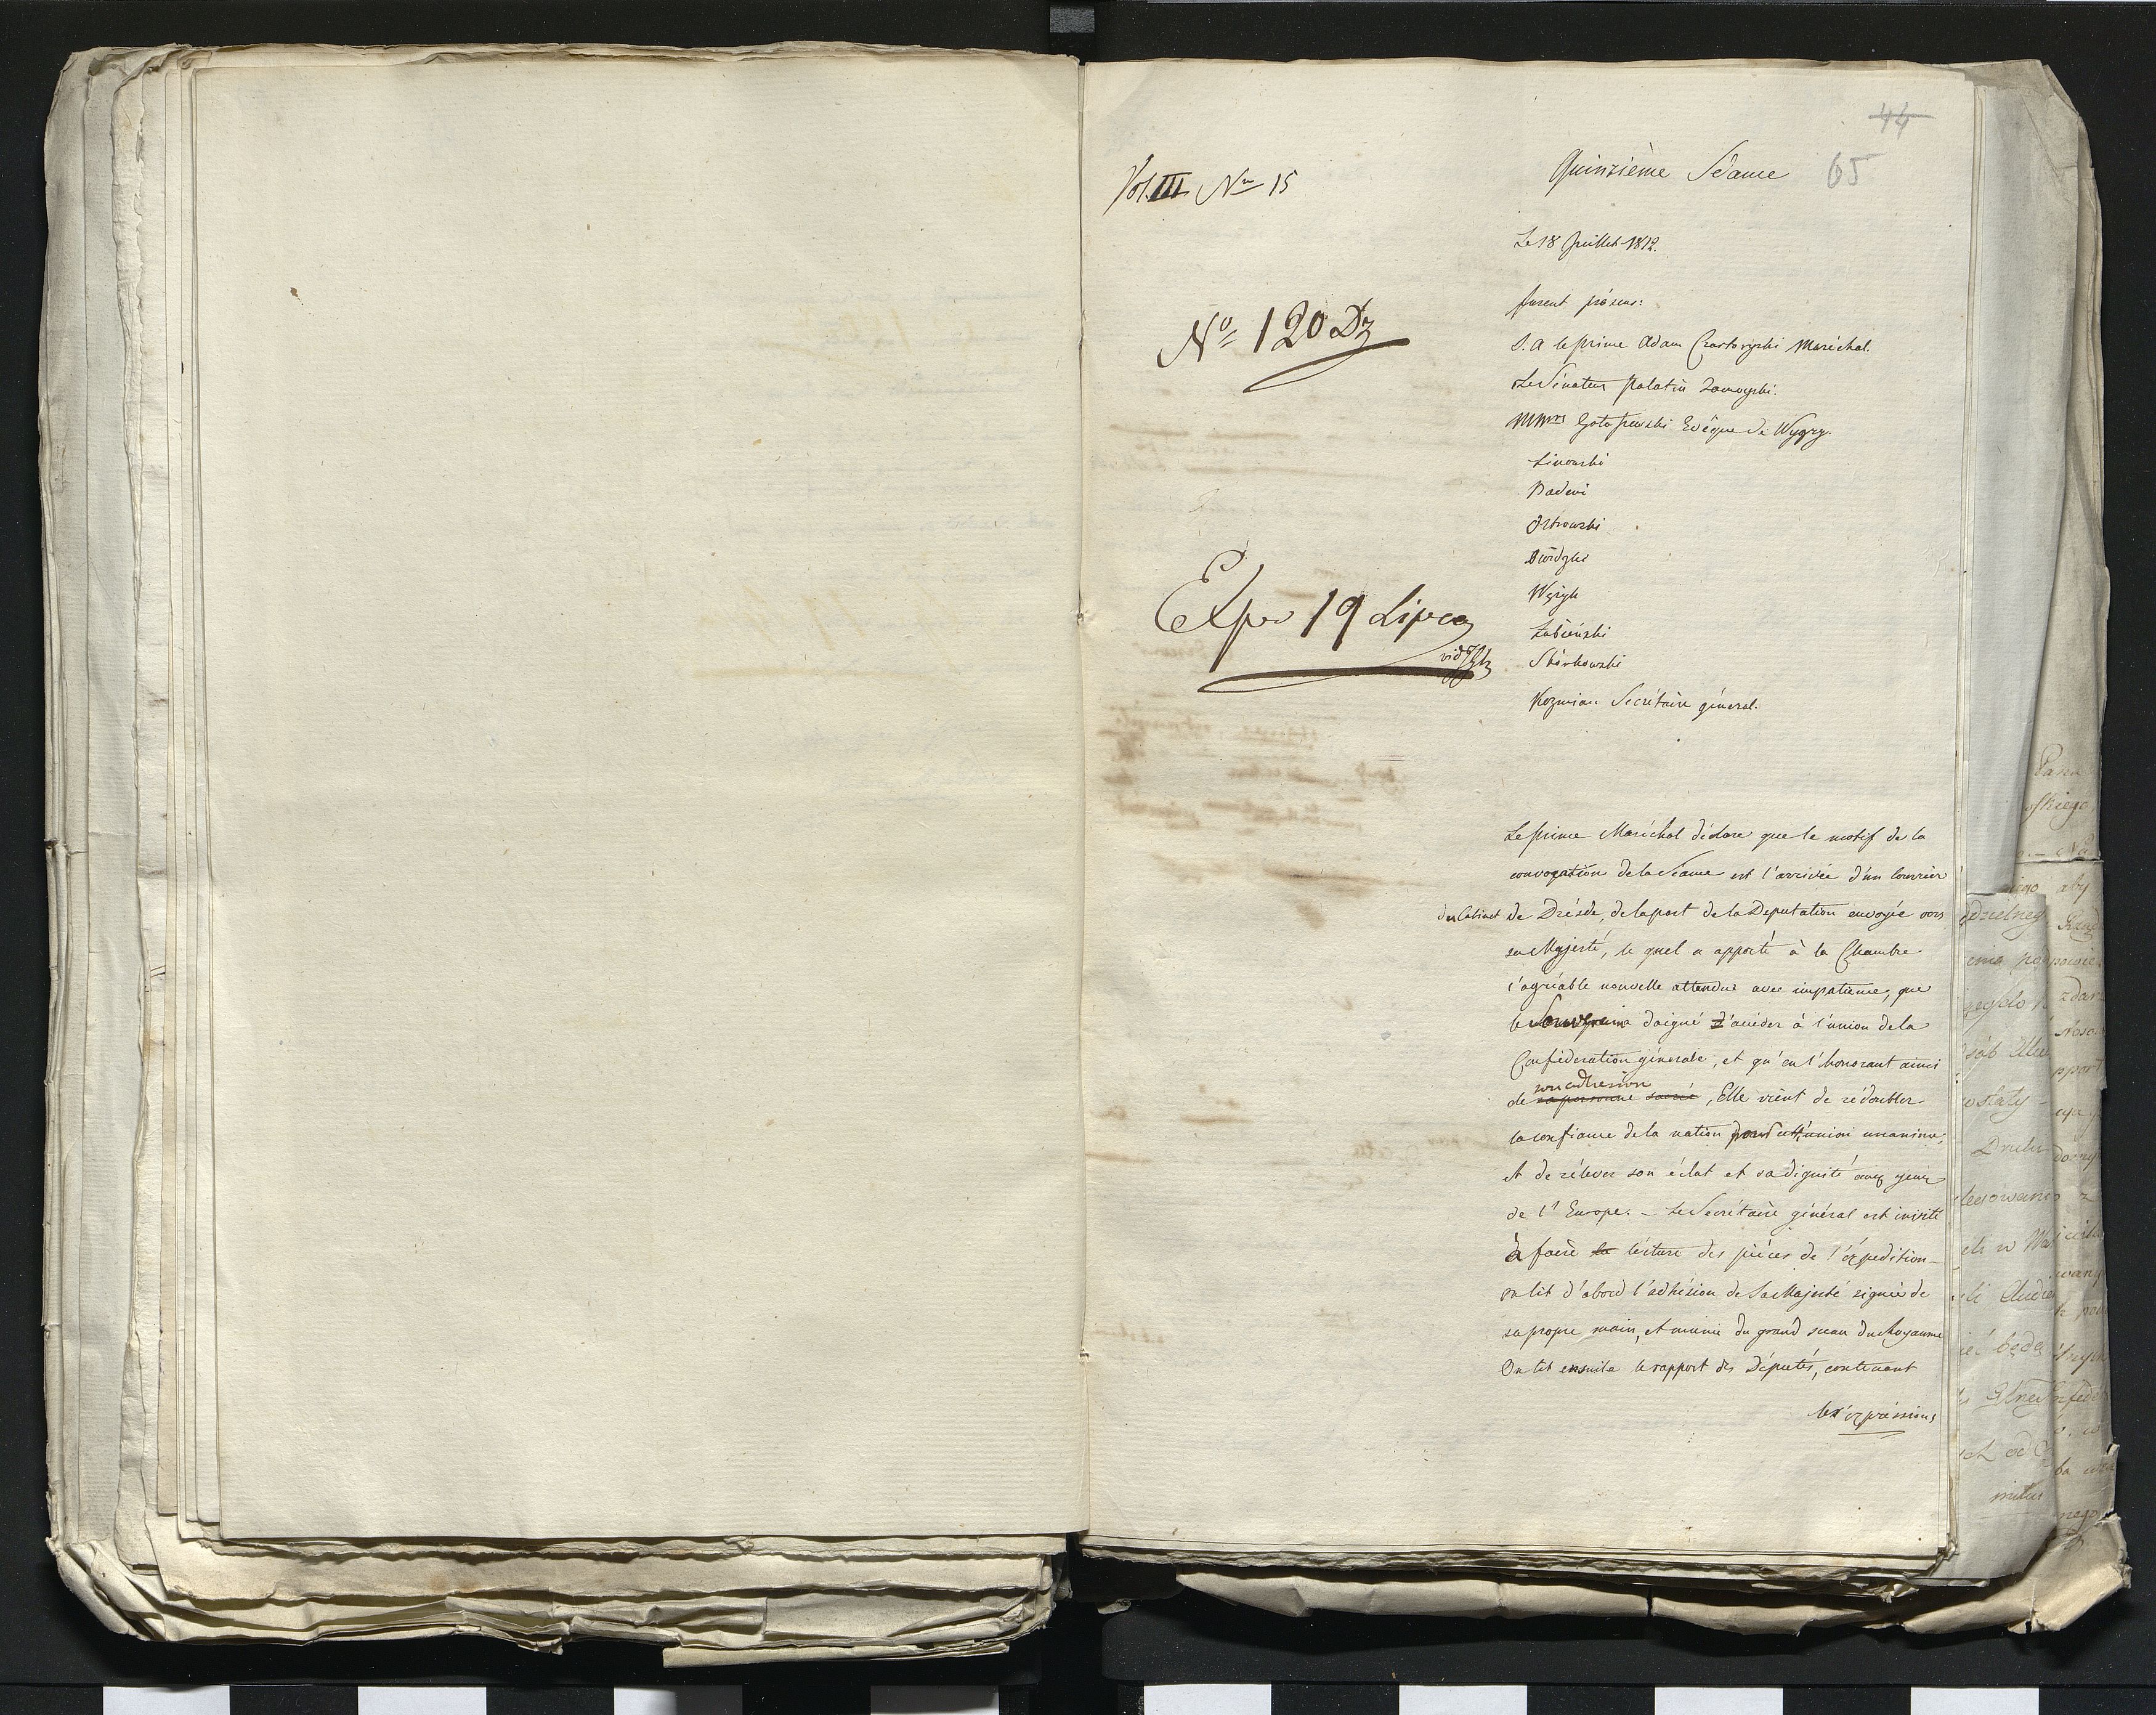 44
65
Vol. III N<sup>ro</sup> 15
Quinzième Séance
Le 18 Juillet 1812.
N<sup>o</sup> 120 Dz
furent présens:
S. A le prince Adam Czartoryski Maréchal.
Le Sénateur Palatin Zamoyski.
MM<sup>rs</sup> Gołaszewski Evêque de Wygry.
Linowski
Badeni
Ostrowski
Dwidzki
Wężyk
Łubieński
Skórkowski
Kozmian Secrétaire général.
Exp. 19 Lipca
vid
Le prince Maréchal déclare que le motif de la
convogation de la Séance est l'arrivée d'un Courrier
du Cabinet de Drésde, de la part de la Deputation envoyée vers
sa Majesté, le quel a apporté à la Chambre
l'agréable nouvelle attendue avec impatience, que
le Souverain a daigné d'accéder à l'union de la
Conféderation générale, et qu'en l'honorant ainsi
son adhesion
de sa personne sacrée, Elle vient de rédoubler
la confiance de la nation pour cett'union unanime,
et de rélever son éclat et sa dignité aux yeux
de l'Europe. – Le Secrétaire général est invité
à faire la lécture des pièces de l'éxpedition –
on lit d'abord l'adhésion de Sa Majesté signée de
sa propre main, et munie du grand sceau du Royaume
On lit ensuite le rapport des Députés, contenant
les éxpréssions